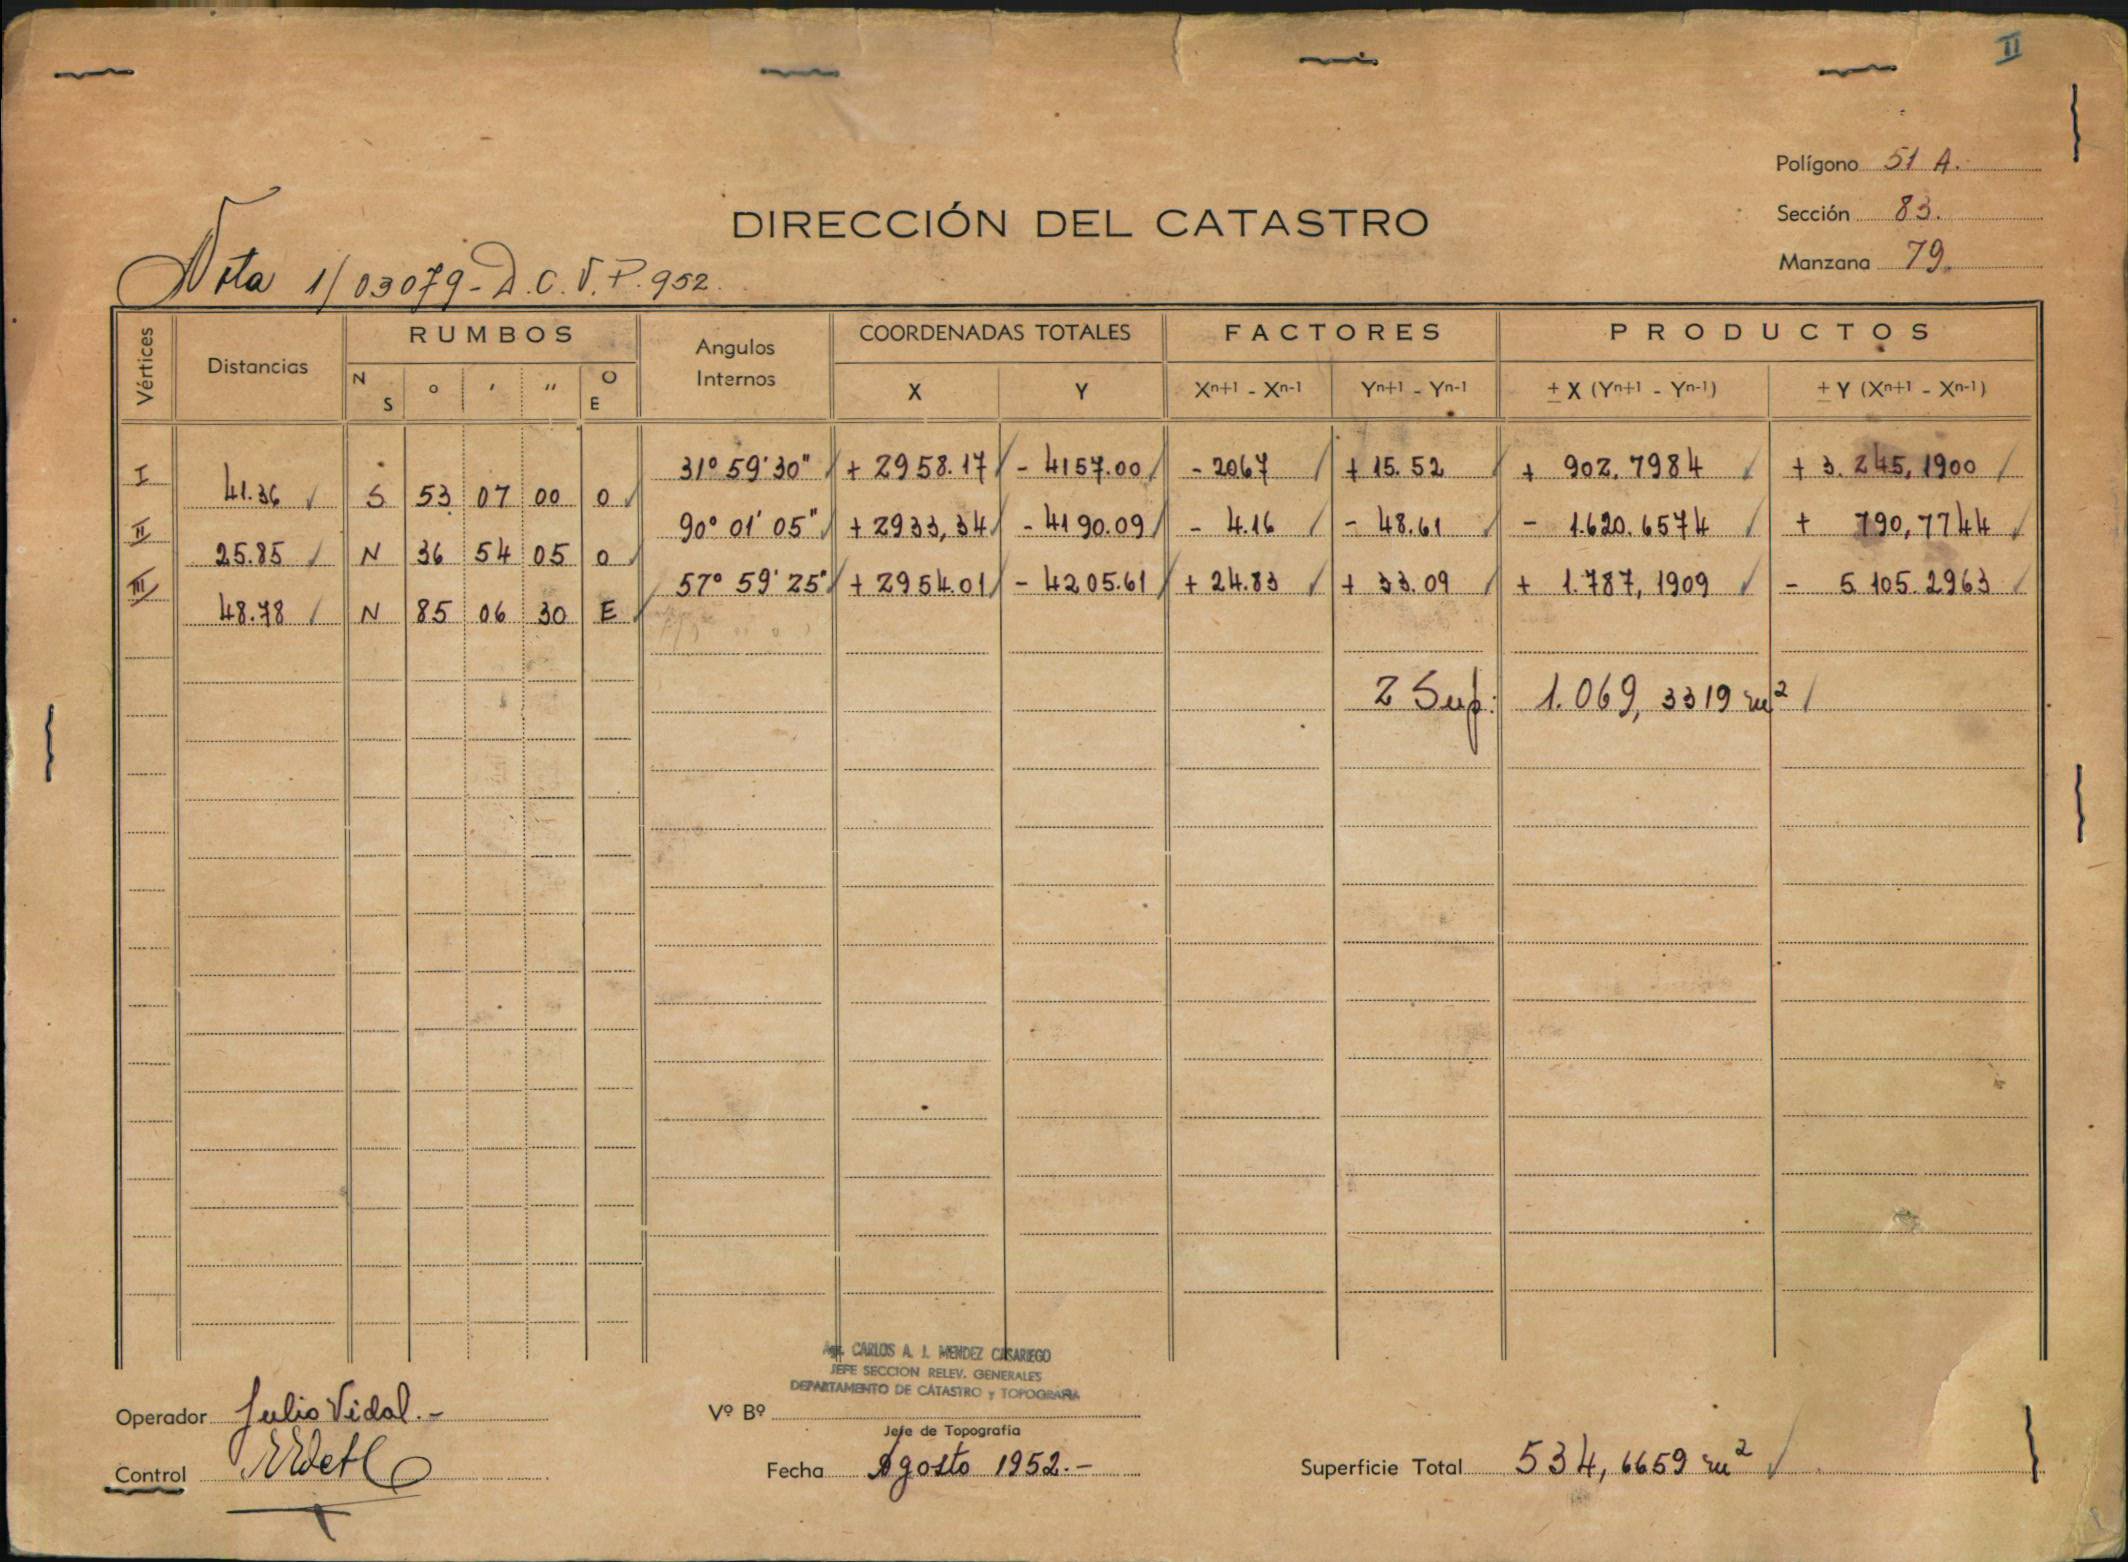 II
Polígono 51 A.
Sección 83.
Manzana 79.
DIRECCIÓN DEL CATASTRO
Nota 1/03079-D.C.V.P.952.
Vértices Distancias RUMBOS Angulos Internos COORDENADAS TOTALES FACTORES PRODUCTOS
N S ° ' " O E X Y Xn+1 - Xn-1 Yn+1 - Yn-1 ± X (Yn+1 - Yn-1) ± Y (Xn+1 - Xn-1)
I 31° 59' 30" + 2958.17 - 4157.00 - 2067 + 15.52 + 902,7984 + 3.245,1900
41.36 S 53 07 00 O
II 90° 01' 05" + 2933,34 - 4190.09 - 4.16 - 48.61 - 1.620.6574 + 790,7744
25.85 N 36 54 05 O
III 57° 59' 25" + 2954.01 - 4205.61 + 24.83 + 33.09 + 1.787,1909 - 5 105.2963
48.78 N 85 06 30 E
2 Sup: 1.069,3319 m²
Agr. CARLOS A. J. MENDEZ CASARIEGO
JEFE SECCION RELEV. GENERALES
DEPARTAMENTO DE CATASTRO y TOPOGRAFIA
Operador Julio Vidal.-
Vº Bº
Jefe de Topografía
Control
Fecha Agosto 1952.-
Superficie Total 534,6659 m²